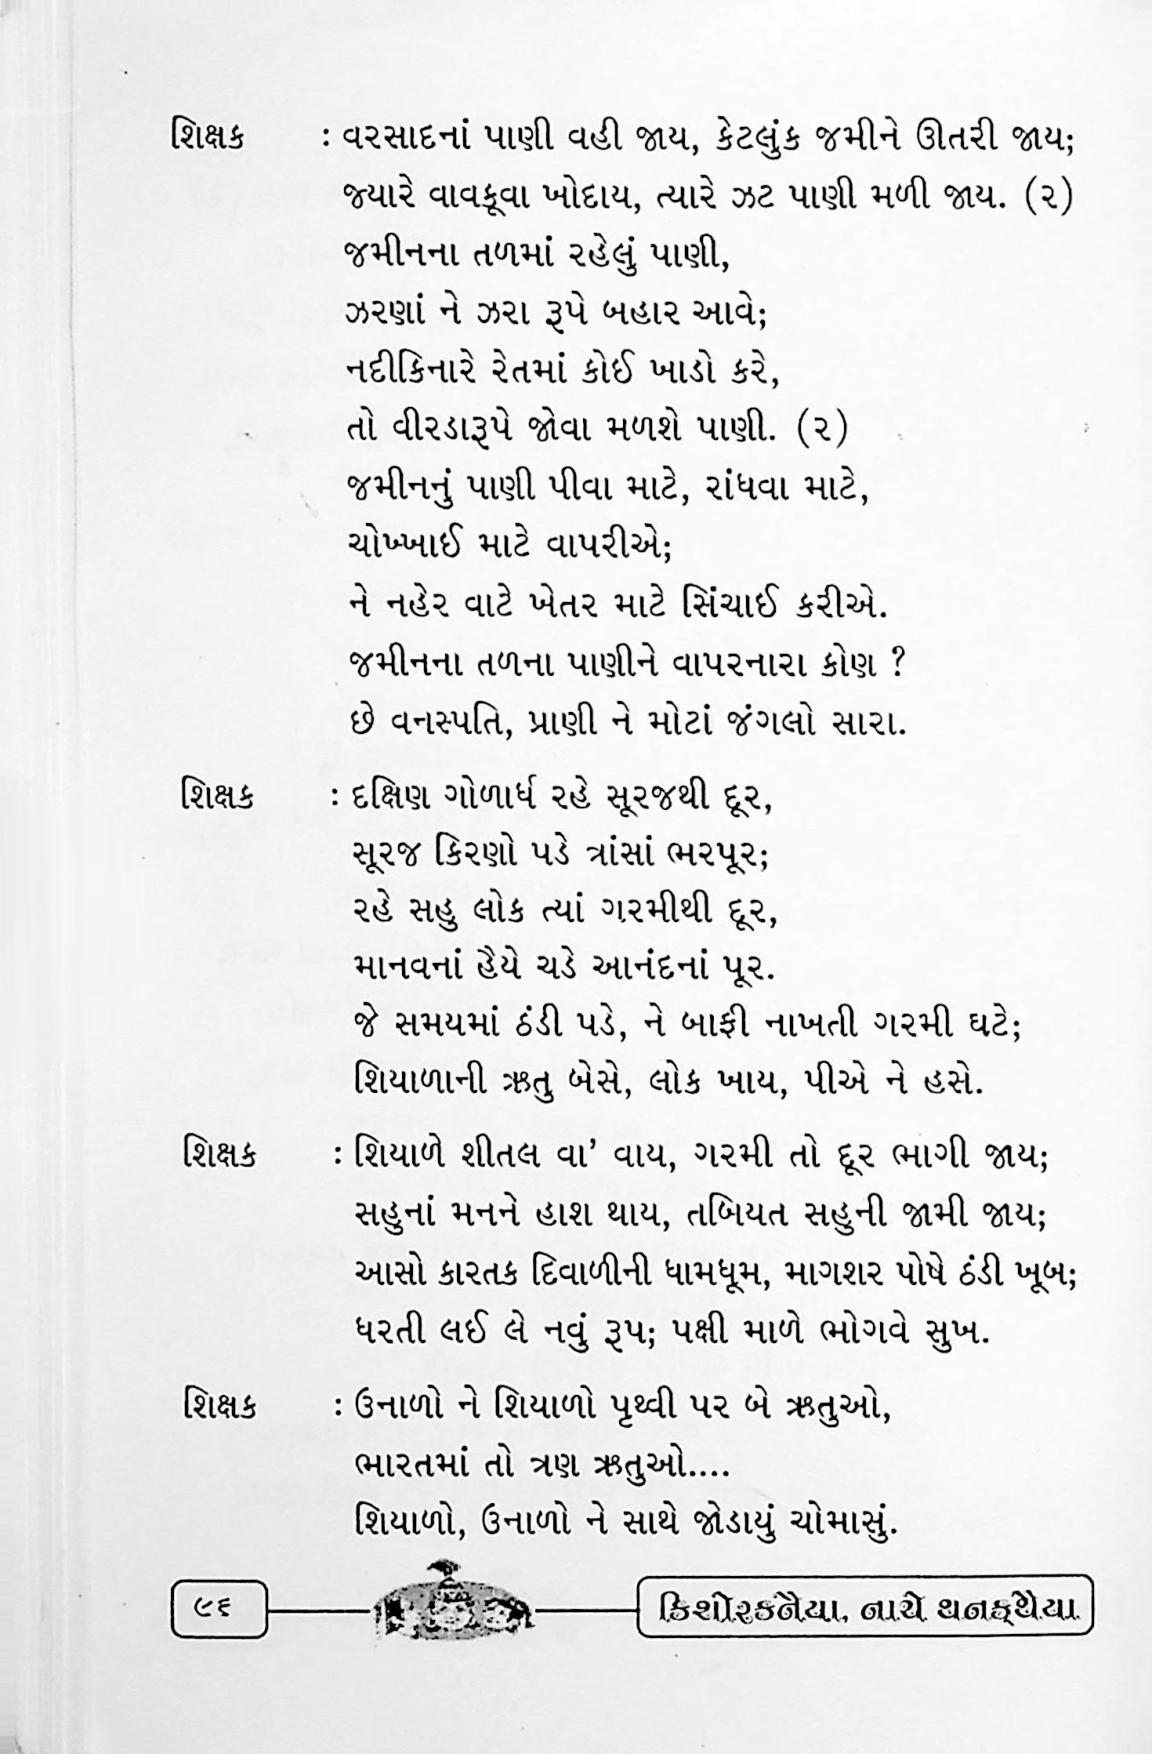 શિક્ષક : વરસાદનાં પાણી વહી જાય, કેટલુંક જમીને ઊતરી જાય;
જ્યારે વાવકૂવા ખોદાય, ત્યારે ઝટ પાણી મળી જાય. (૨)
જમીનના તળમાં રહેલું પાણી,
ઝરણાં ને ઝરા રૂપે બહાર આવે;
નદીકિનારે રેતમાં કોઈ ખાડો કરે,
તો વીરડારૂપે જોવા મળશે પાણી. (૨)
જમીનનું પાણી પીવા માટે, રાંધવા માટે,
ચોખ્ખાઈ માટે વાપરીએ;
ને નહેર વાટે ખેતર માટે સિંચાઈ કરીએ.
જમીનના તળના પાણીને વાપરનારા કોણ ?
છે વનસ્પતિ, પ્રાણી ને મોટાં જંગલો સારા.
શિક્ષક : દક્ષિણ ગોળાર્ધ રહે સૂરજથી દૂર,
સૂરજ કિરણો પડે ત્રાંસાં ભરપૂર;
રહે સહુ લોક ત્યાં ગરમીથી દૂર,
માનવનાં હૈયે ચડે આનંદનાં પૂર.
જે સમયમાં ઠંડી પડે, ને બાફી નાખતી ગરમી ઘટે;
શિયાળાની ઋતુ બેસે, લોક ખાય, પીએ ને હસે.
શિક્ષક : શિયાળે શીતલ વા’ વાય, ગરમી તો દૂર ભાગી જાય;
સહુનાં મનને હાશ થાય, તબિયત સહુની જામી જાય;
આસો કારતક દિવાળીની ધામધૂમ, માગશર પોષે ઠંડી ખૂબ;
ધરતી લઈ લે નવું રૂપ; પક્ષી માળે ભોગવે સુખ.
શિક્ષક : ઉનાળો ને શિયાળો પૃથ્વી પર બે ઋતુઓ,
ભારતમાં તો ત્રણ ઋતુઓ....
શિયાળો, ઉનાળો ને સાથે જોડાયું ચોમાસું.
૯૬ કિશોરકનૈયા, નાચે થનક્થૈયા